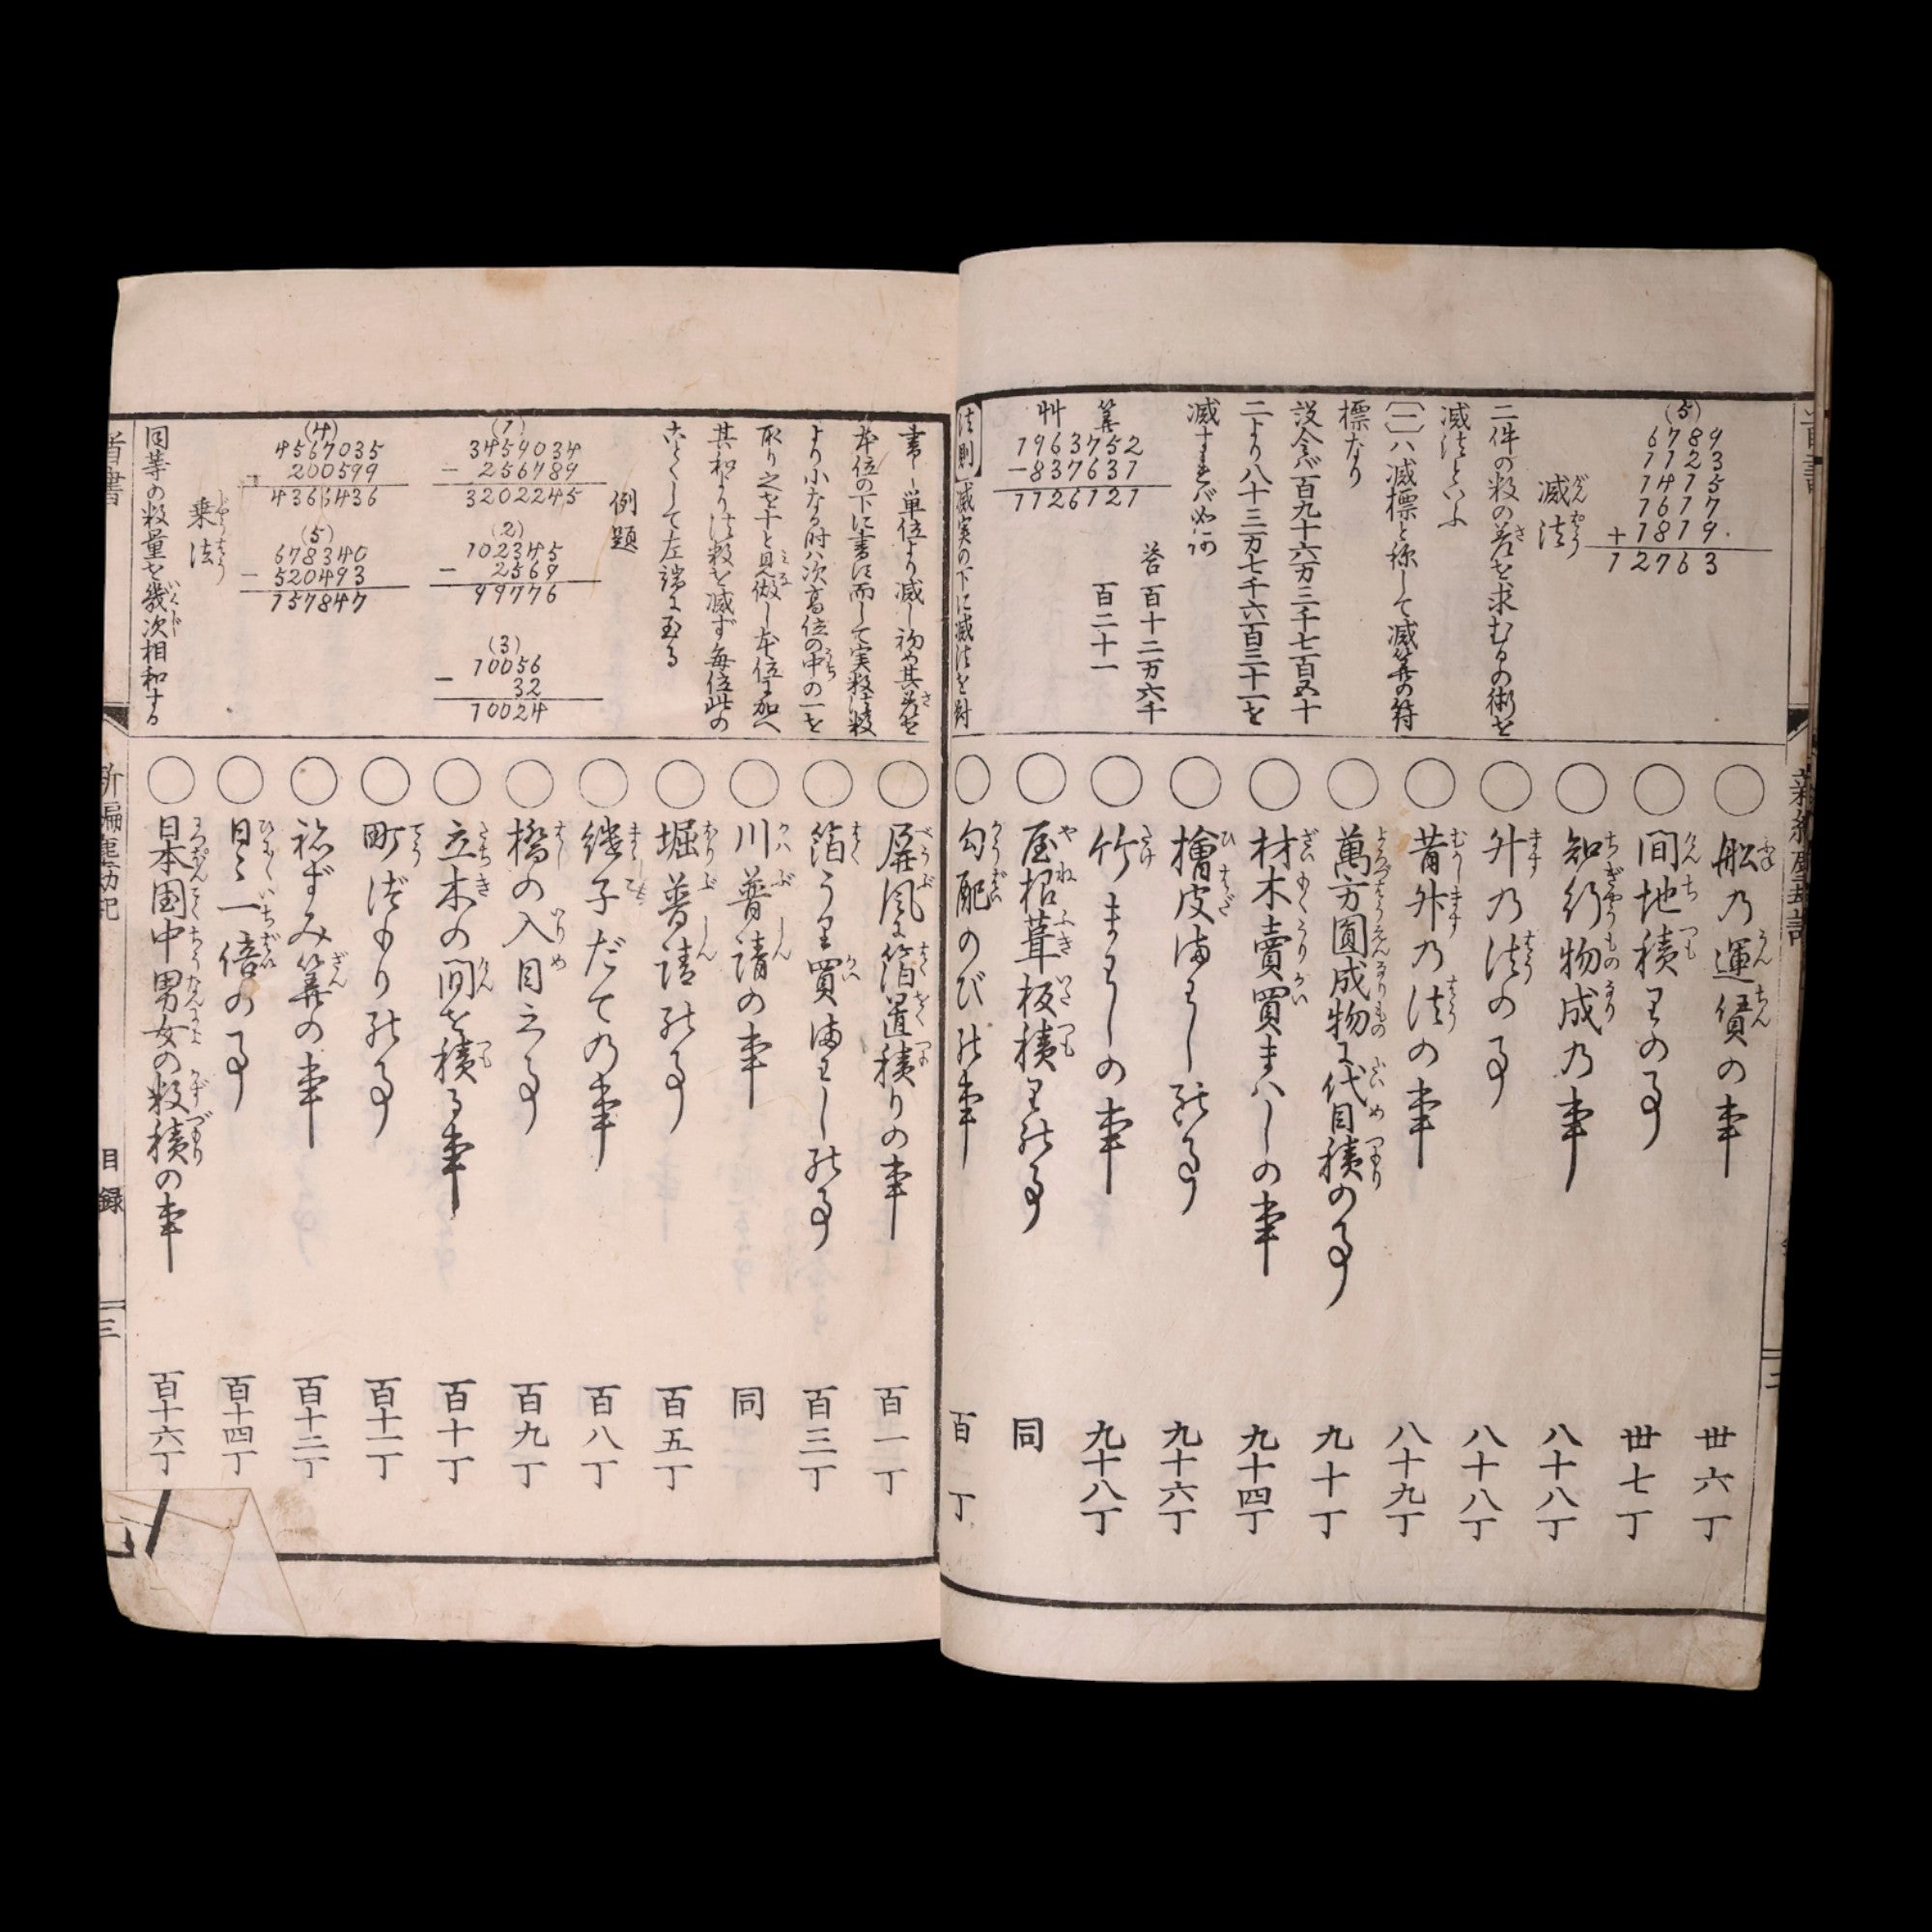 (5)
6789
1123
1415
1617
+1819.
12763
減法
二件の数の差を求むるの術を
減法といふ
〔一〕ハ減標と称して減算の符
標なり
設令バ百九十六万三千七百五十
二より八十三万七千六百三十一を
減すれバ如何
答 百十二万六千
百二十一
算
艸
1963752
-837631
1126121
法則 減実の下に減法を対
○船乃運賃の事 卅六丁
○間地積りの事 卅七丁
○知行物成乃事 八十八丁
○升乃法の事 八十八丁
○昔升乃法の事 八十九丁
○萬方圓成物に代目積の事 九十丁
○材木賣買まハしの事 九十四丁
○檜皮まわしの事 九十六丁
○竹まわしの事 九十八丁
○屋根葺板積りの事 同
○勾配のびの事 百 丁
書し単位より減し初め其差を
本位の下に書す而して実数法数
より小なる時ハ次高位の中の一を
取り之を十と見做し本位に加へ
其和より法数を減ず毎位此の
ことくして左端に至る
例題
(1)
3459034
- 256789
3202245
(2)
102345
- 2569
99776
(3)
10056
- 32
10024
(4)
4567035
- 200599
4366436
(5)
678340
- 520493
157847
乗法
同等の数量を幾次相和する
○屏風に箔置積りの事 百一丁
○箔うり買まわしの事 百三丁
○川普請の事 同
○堀普請の事 百五丁
○継子だての事 百八丁
○橋の入目之事 百九丁
○立木の間を積る事 百十丁
○町つもりの事 百十一丁
○祢ずみ算の事 百十二丁
○日々一倍の事 百十四丁
○日本国中男女の数積の事 百十六丁
首書
新編塵劫記
目録
三